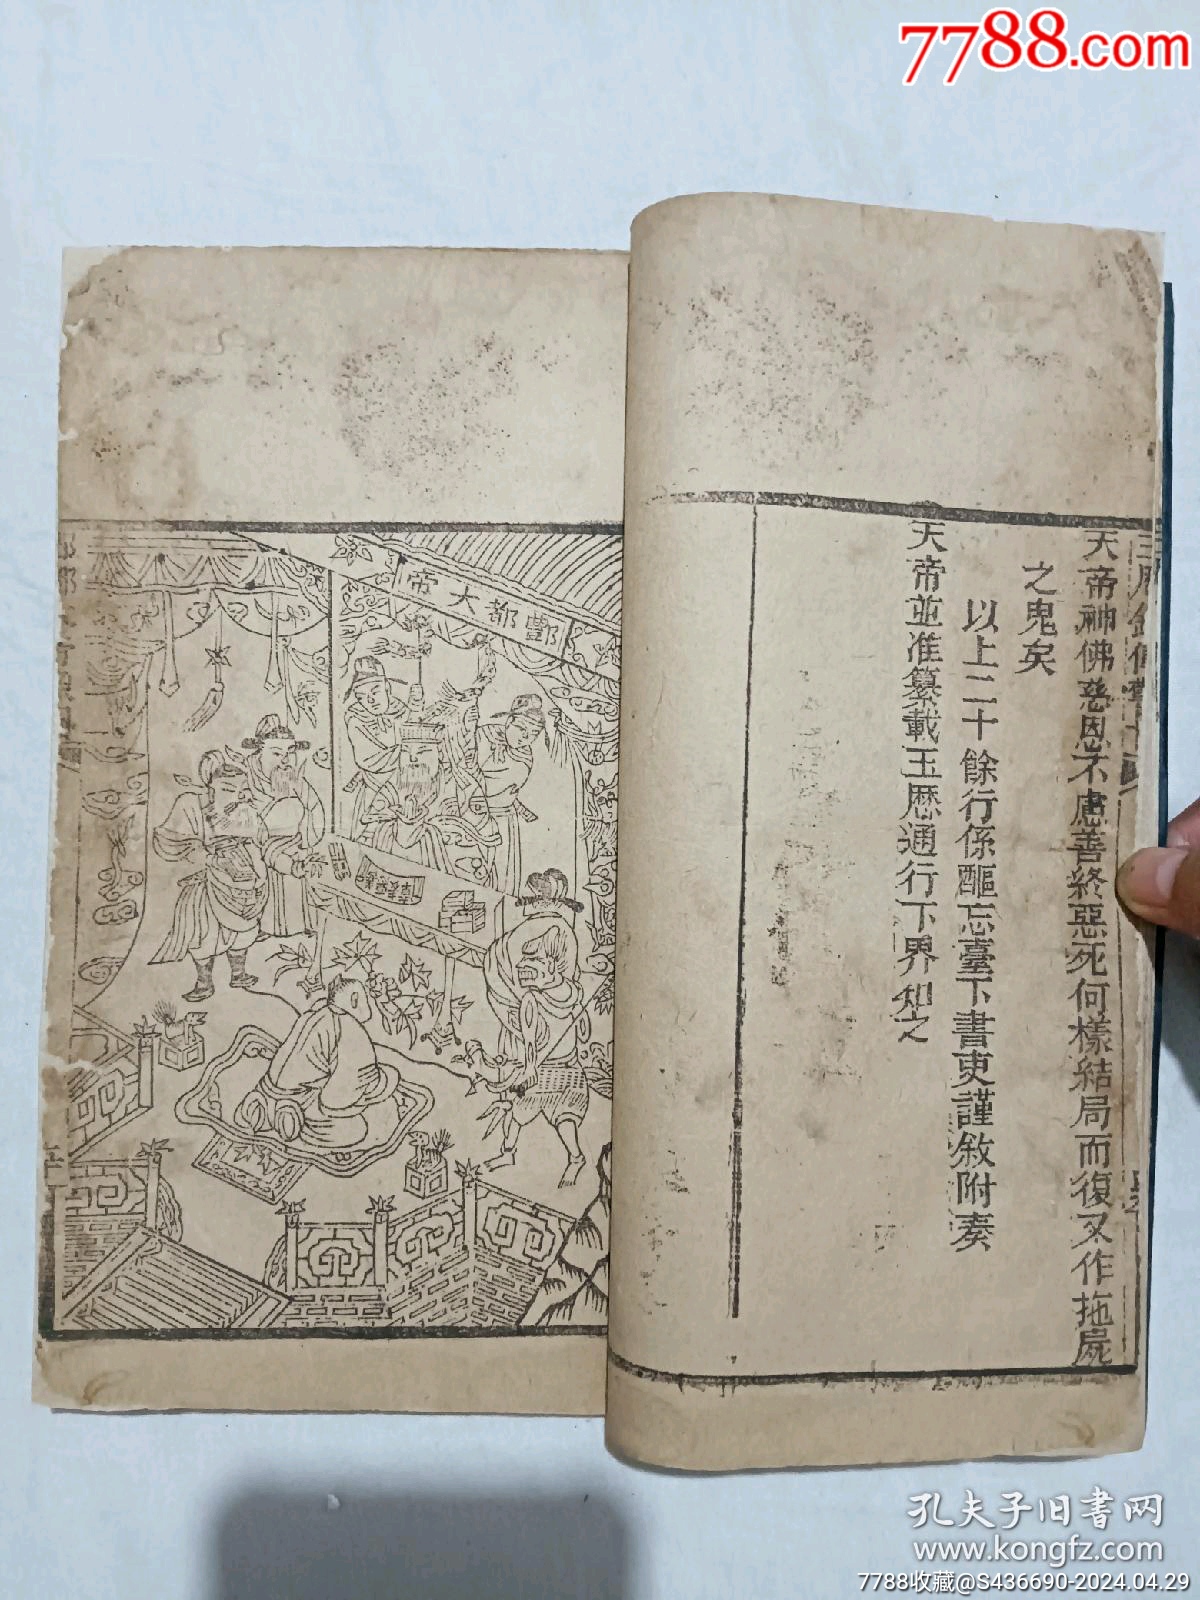 7788.com
天帝神佛慈恩不慮善終惡死何樣結局而復又作拖屍
之鬼矣
以上二十餘行係醧忘臺下書吏謹敘附奏
天帝並准纂載玉歷通行下界知之
酆都大帝
孔夫子旧书网
www.kongfz.com
7788收藏@S436690-2024.04.29